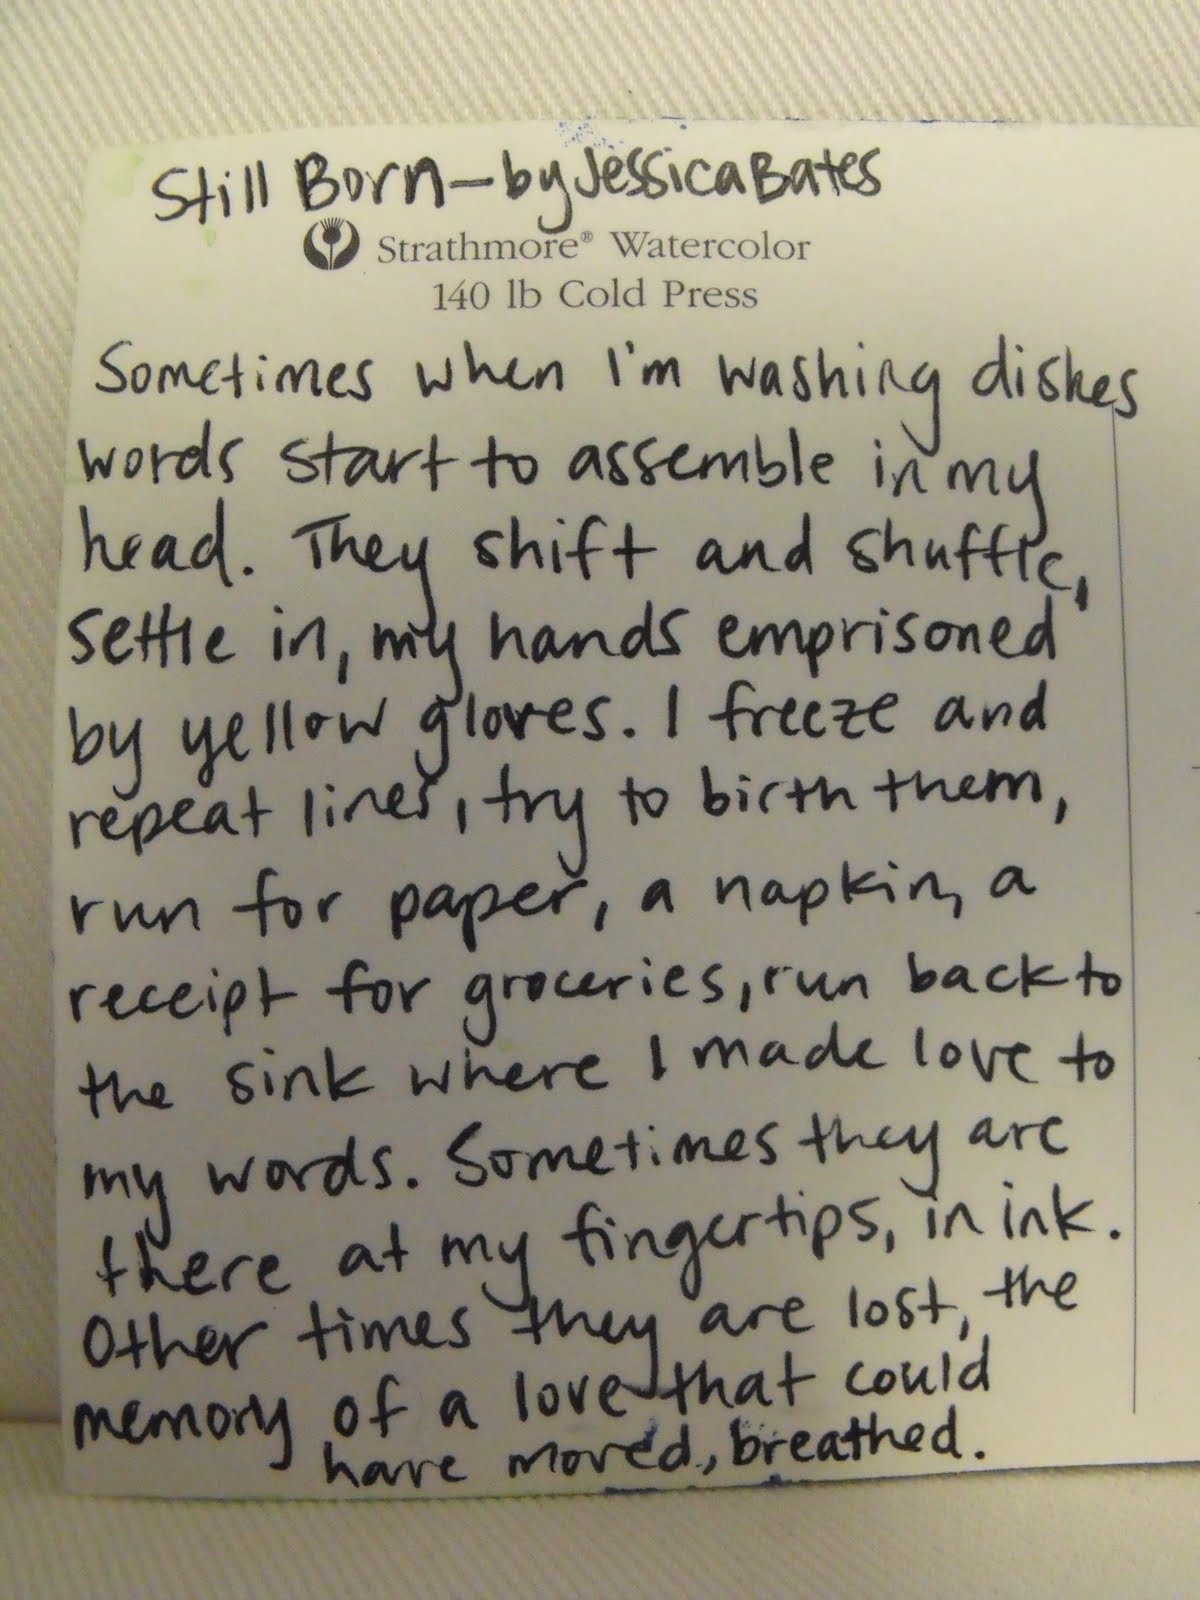 Still Born—by Jessica Bates
Strathmore® Watercolor
140 lb Cold Press
Sometimes when I'm washing dishes
words start to assemble in my
head. They shift and shuffle,
settle in, my hands emprisoned
by yellow gloves. I freeze and
repeat lines, try to birth them,
run for paper, a napkin, a
receipt for groceries, run back to
the sink where I made love to
my words. Sometimes they are
there at my fingertips, in ink.
Other times they are lost, the
memory of a love that could
have moved, breathed.